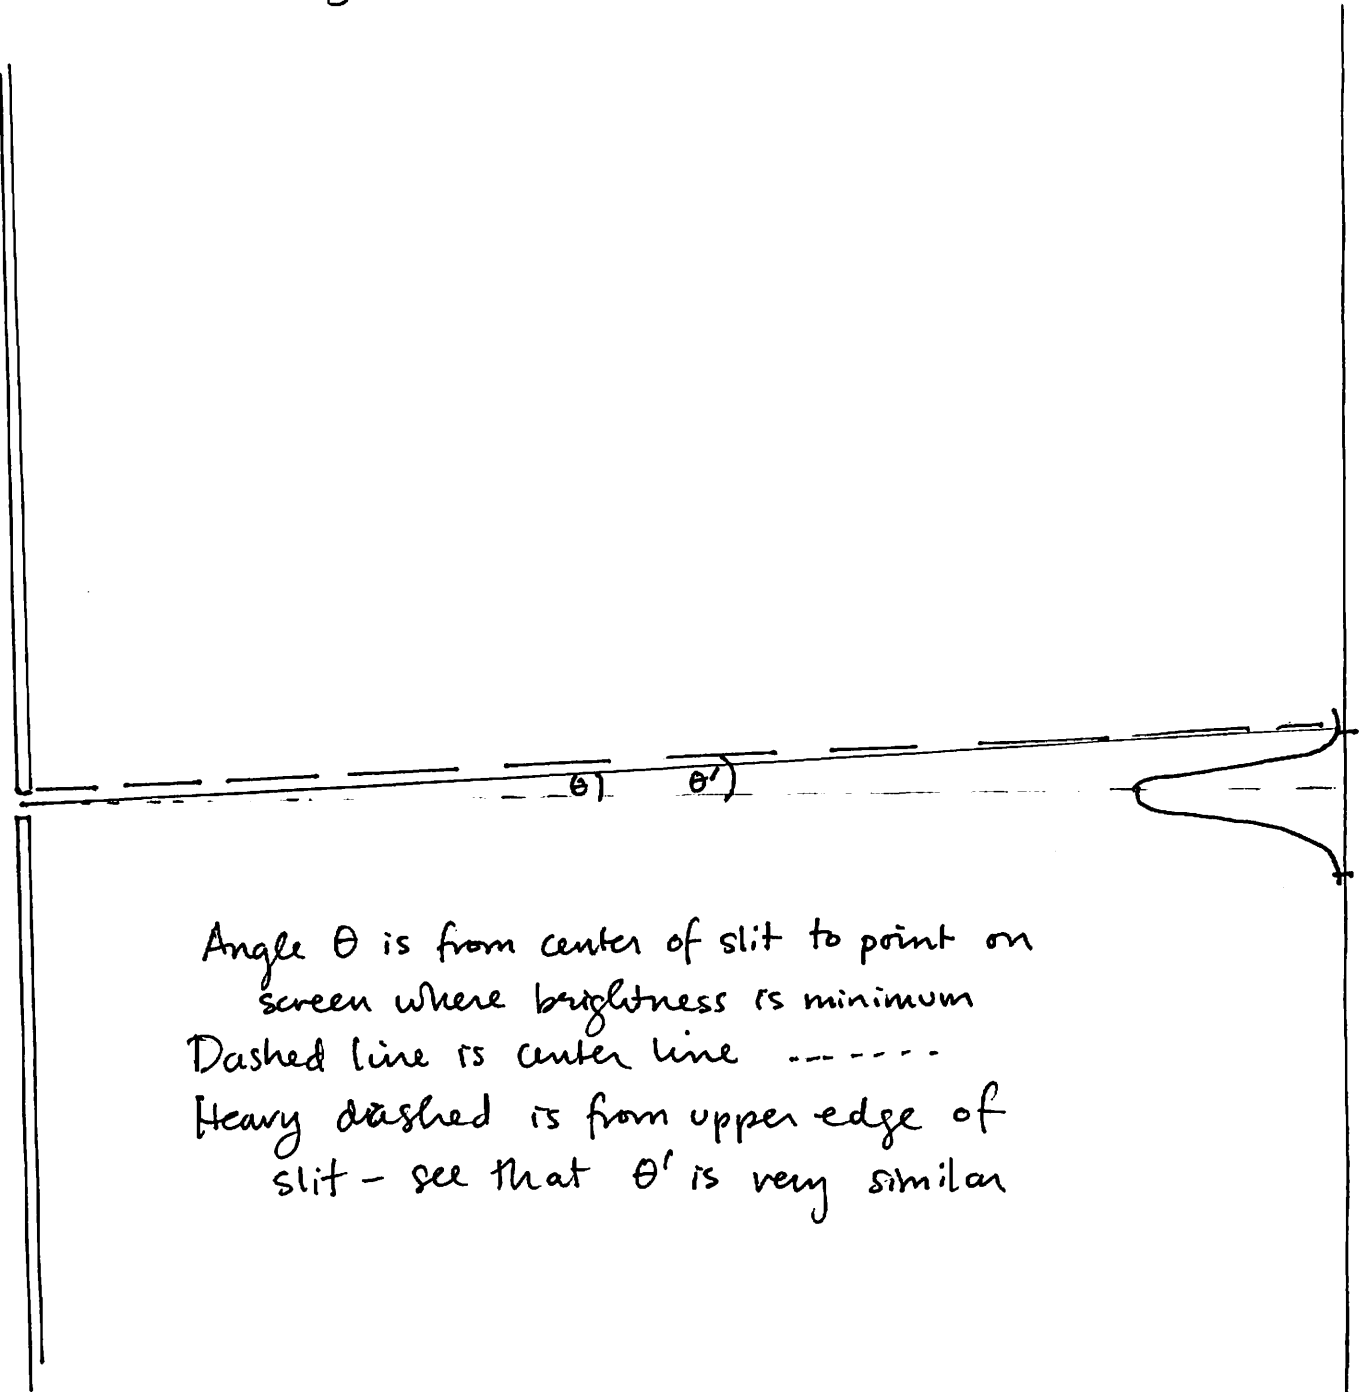 θ θ'
Angle θ is from center of slit to point on
screen where brightness is minimum
Dashed line is center line -------
Heavy dashed is from upper edge of
slit – see that θ' is very similar